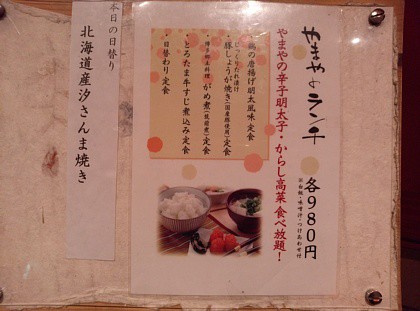 やまやのランチ
各980円
※白飯・味噌汁・つけあわせ付
やまやの辛子明太子・からし高菜食べ放題！
・鶏の唐揚げ明太風味定食
・豚しょうが焼き(国産豚使用)定食
・博多郷土料理 がめ煮(筑前煮)定食
・とろたま牛すじ煮込み定食
・日替わり定食
本日の日替り
北海道産汐さんま焼き